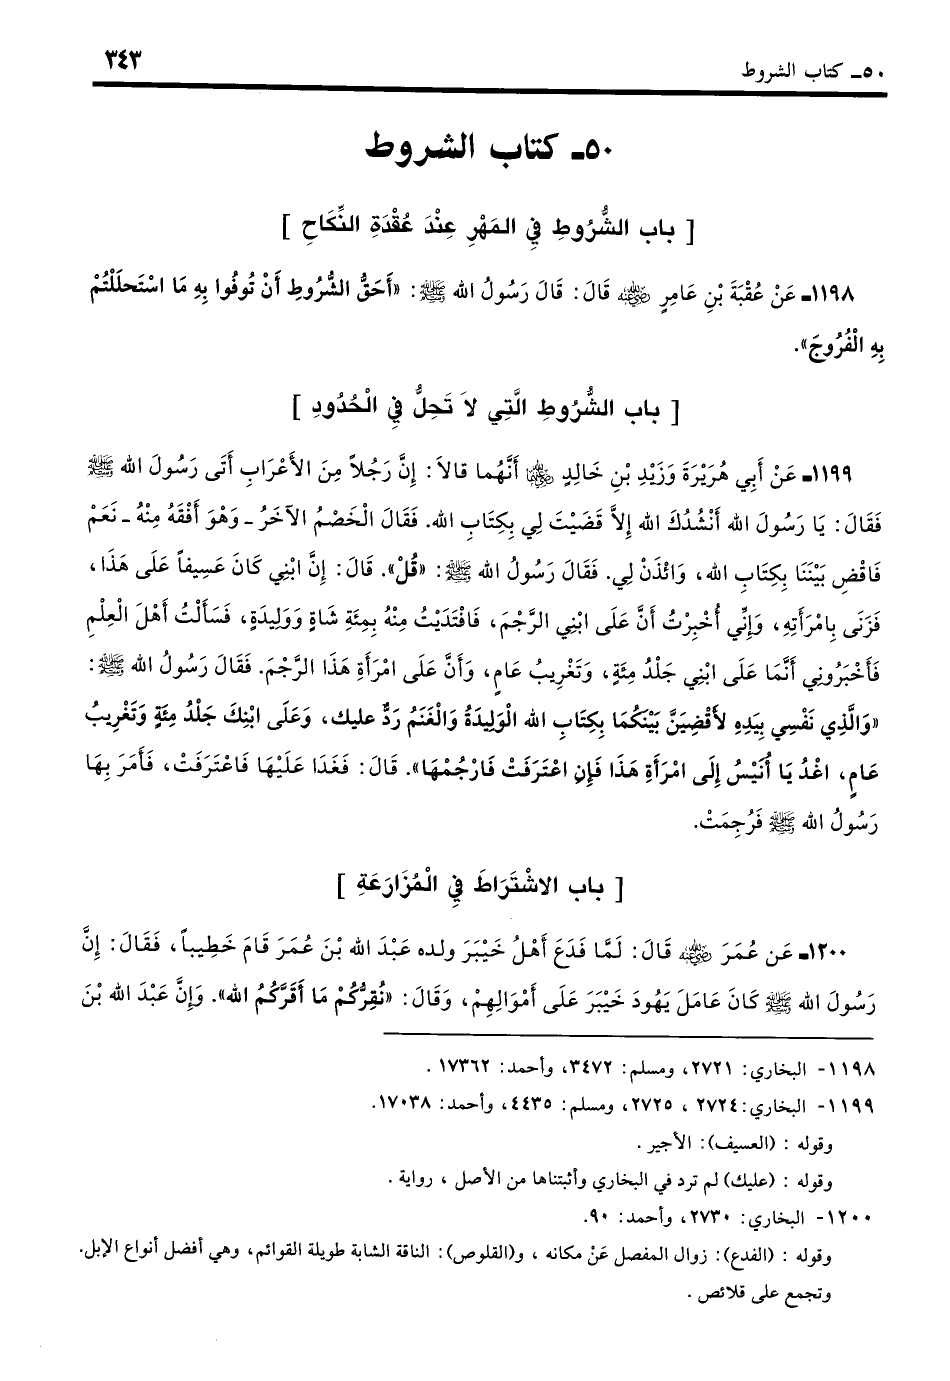 ٥٠ـ كتاب الشروط ٣٤٣
٥٠ـ كتاب الشروط
[ باب الشُّرُوطِ فِي المَهْرِ عِنْدَ عُقْدَةِ النِّكَاحِ ]
١١٩٨ـ عَنْ عُقْبَةَ بْنِ عَامِرٍ رضي الله عنه قَالَ: قَالَ رَسُولُ الله ﷺ: «أَحَقُّ الشُّرُوطِ أَنْ تُوفُوا بِهِ مَا اسْتَحلَلْتُمْ
بِهِ الْفُرُوجَ».
[ باب الشُّرُوطِ الَّتِي لاَ تَحِلُّ فِي الْحُدُودِ ]
١١٩٩ـ عَنْ أَبِي هُرَيْرَةَ وَزَيْدِ بْنِ خَالِدٍ رضي الله عنهما أَنَّهُما قالاَ: إِنَّ رَجُلاً مِنَ الأَعْرَابِ أَتَى رَسُولَ الله ﷺ
فَقَالَ: يَا رَسُولَ الله أَنْشُدُكَ الله إِلاَّ قَضَيْتَ لِي بِكِتَابِ الله. فَقَالَ الْخَصْمُ الآخَرُ ـ وَهْوَ أَفْقَهُ مِنْهُ ـ نَعَمْ
فَاقْضِ بَيْنَنَا بِكِتَابِ الله، وَائْذَنْ لِي. فَقَالَ رَسُولُ الله ﷺ: «قُلْ». قَالَ: إِنَّ ابْنِي كَانَ عَسِيفاً عَلَى هَذَا،
فَزَنَى بِامْرَأَتِهِ، وَإِنِّي أُخْبِرْتُ أَنَّ عَلَى ابْنِي الرَّجْمَ، فَافْتَدَيْتُ مِنْهُ بِمِئَةِ شَاةٍ وَوَلِيدَةٍ، فَسَأَلْتُ أَهْلَ الْعِلْمِ
فَأَخْبَرُونِي أَنَّمَا عَلَى ابْنِي جَلْدُ مِئَةٍ، وَتَغْرِيبُ عَامٍ، وَأَنَّ عَلَى امْرَأَةِ هَذَا الرَّجْمَ. فَقَالَ رَسُولُ الله ﷺ:
«وَالَّذِي نَفْسِي بِيَدِهِ لأَقْضِيَنَّ بَيْنَكُمَا بِكِتَابِ الله الْوَلِيدَةُ وَالْغَنَمُ رَدٌّ عليك، وَعَلَى ابْنِكَ جَلْدُ مِئَةٍ وَتَغْرِيبُ
عَامٍ، اغْدُ يَا أُنَيْسُ إِلَى امْرَأَةِ هَذَا فَإِنِ اعْتَرَفَتْ فَارْجُمْهَا». قَالَ: فَغَدَا عَلَيْهَا فَاعْتَرَفَتْ، فَأَمَرَ بِهَا
رَسُولُ الله ﷺ فَرُجِمَتْ.
[ باب الاشْتَرَاطَ فِي الْمُزَارَعَةِ ]
١٢٠٠ـ عَن عُمَرَ رضي الله عنه قَالَ: لَمَّا فَدَعَ أَهْلُ خَيْبَرَ ولده عَبْدَ الله بْنَ عُمَرَ قَامَ خَطِيباً، فَقَالَ: إِنَّ
رَسُولَ الله ﷺ كَانَ عَامَلَ يَهُودَ خَيْبَرَ عَلَى أَمْوَالِهِمْ، وَقَالَ: «نُقِرُّكُمْ مَا أَقَرَّكُمُ الله». وَإِنَّ عَبْدَ الله بْنَ
١١٩٨- البخاري: ٢٧٢١، ومسلم: ٣٤٧٢، وأحمد: ١٧٣٦٢ .
١١٩٩- البخاري: ٢٧٢٤ ، ٢٧٢٥، ومسلم: ٤٤٣٥، وأحمد: ١٧٠٣٨.
وقوله : (العسيف): الأجير .
وقوله : (عليك) لم ترد في البخاري وأثبتناها من الأصل ، رواية .
١٢٠٠- البخاري: ٢٧٣٠، وأحمد: ٩٠.
وقوله : (الفدع): زوال المفصل عَنْ مكانه ، و(القلوص): الناقة الشابة طويلة القوائم، وهي أفضل أنواع الإبل.
وتجمع على قلائص .